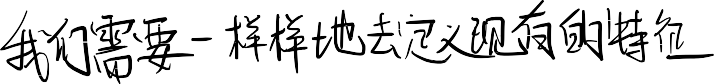 我们需要一样样地去定义现有的特征